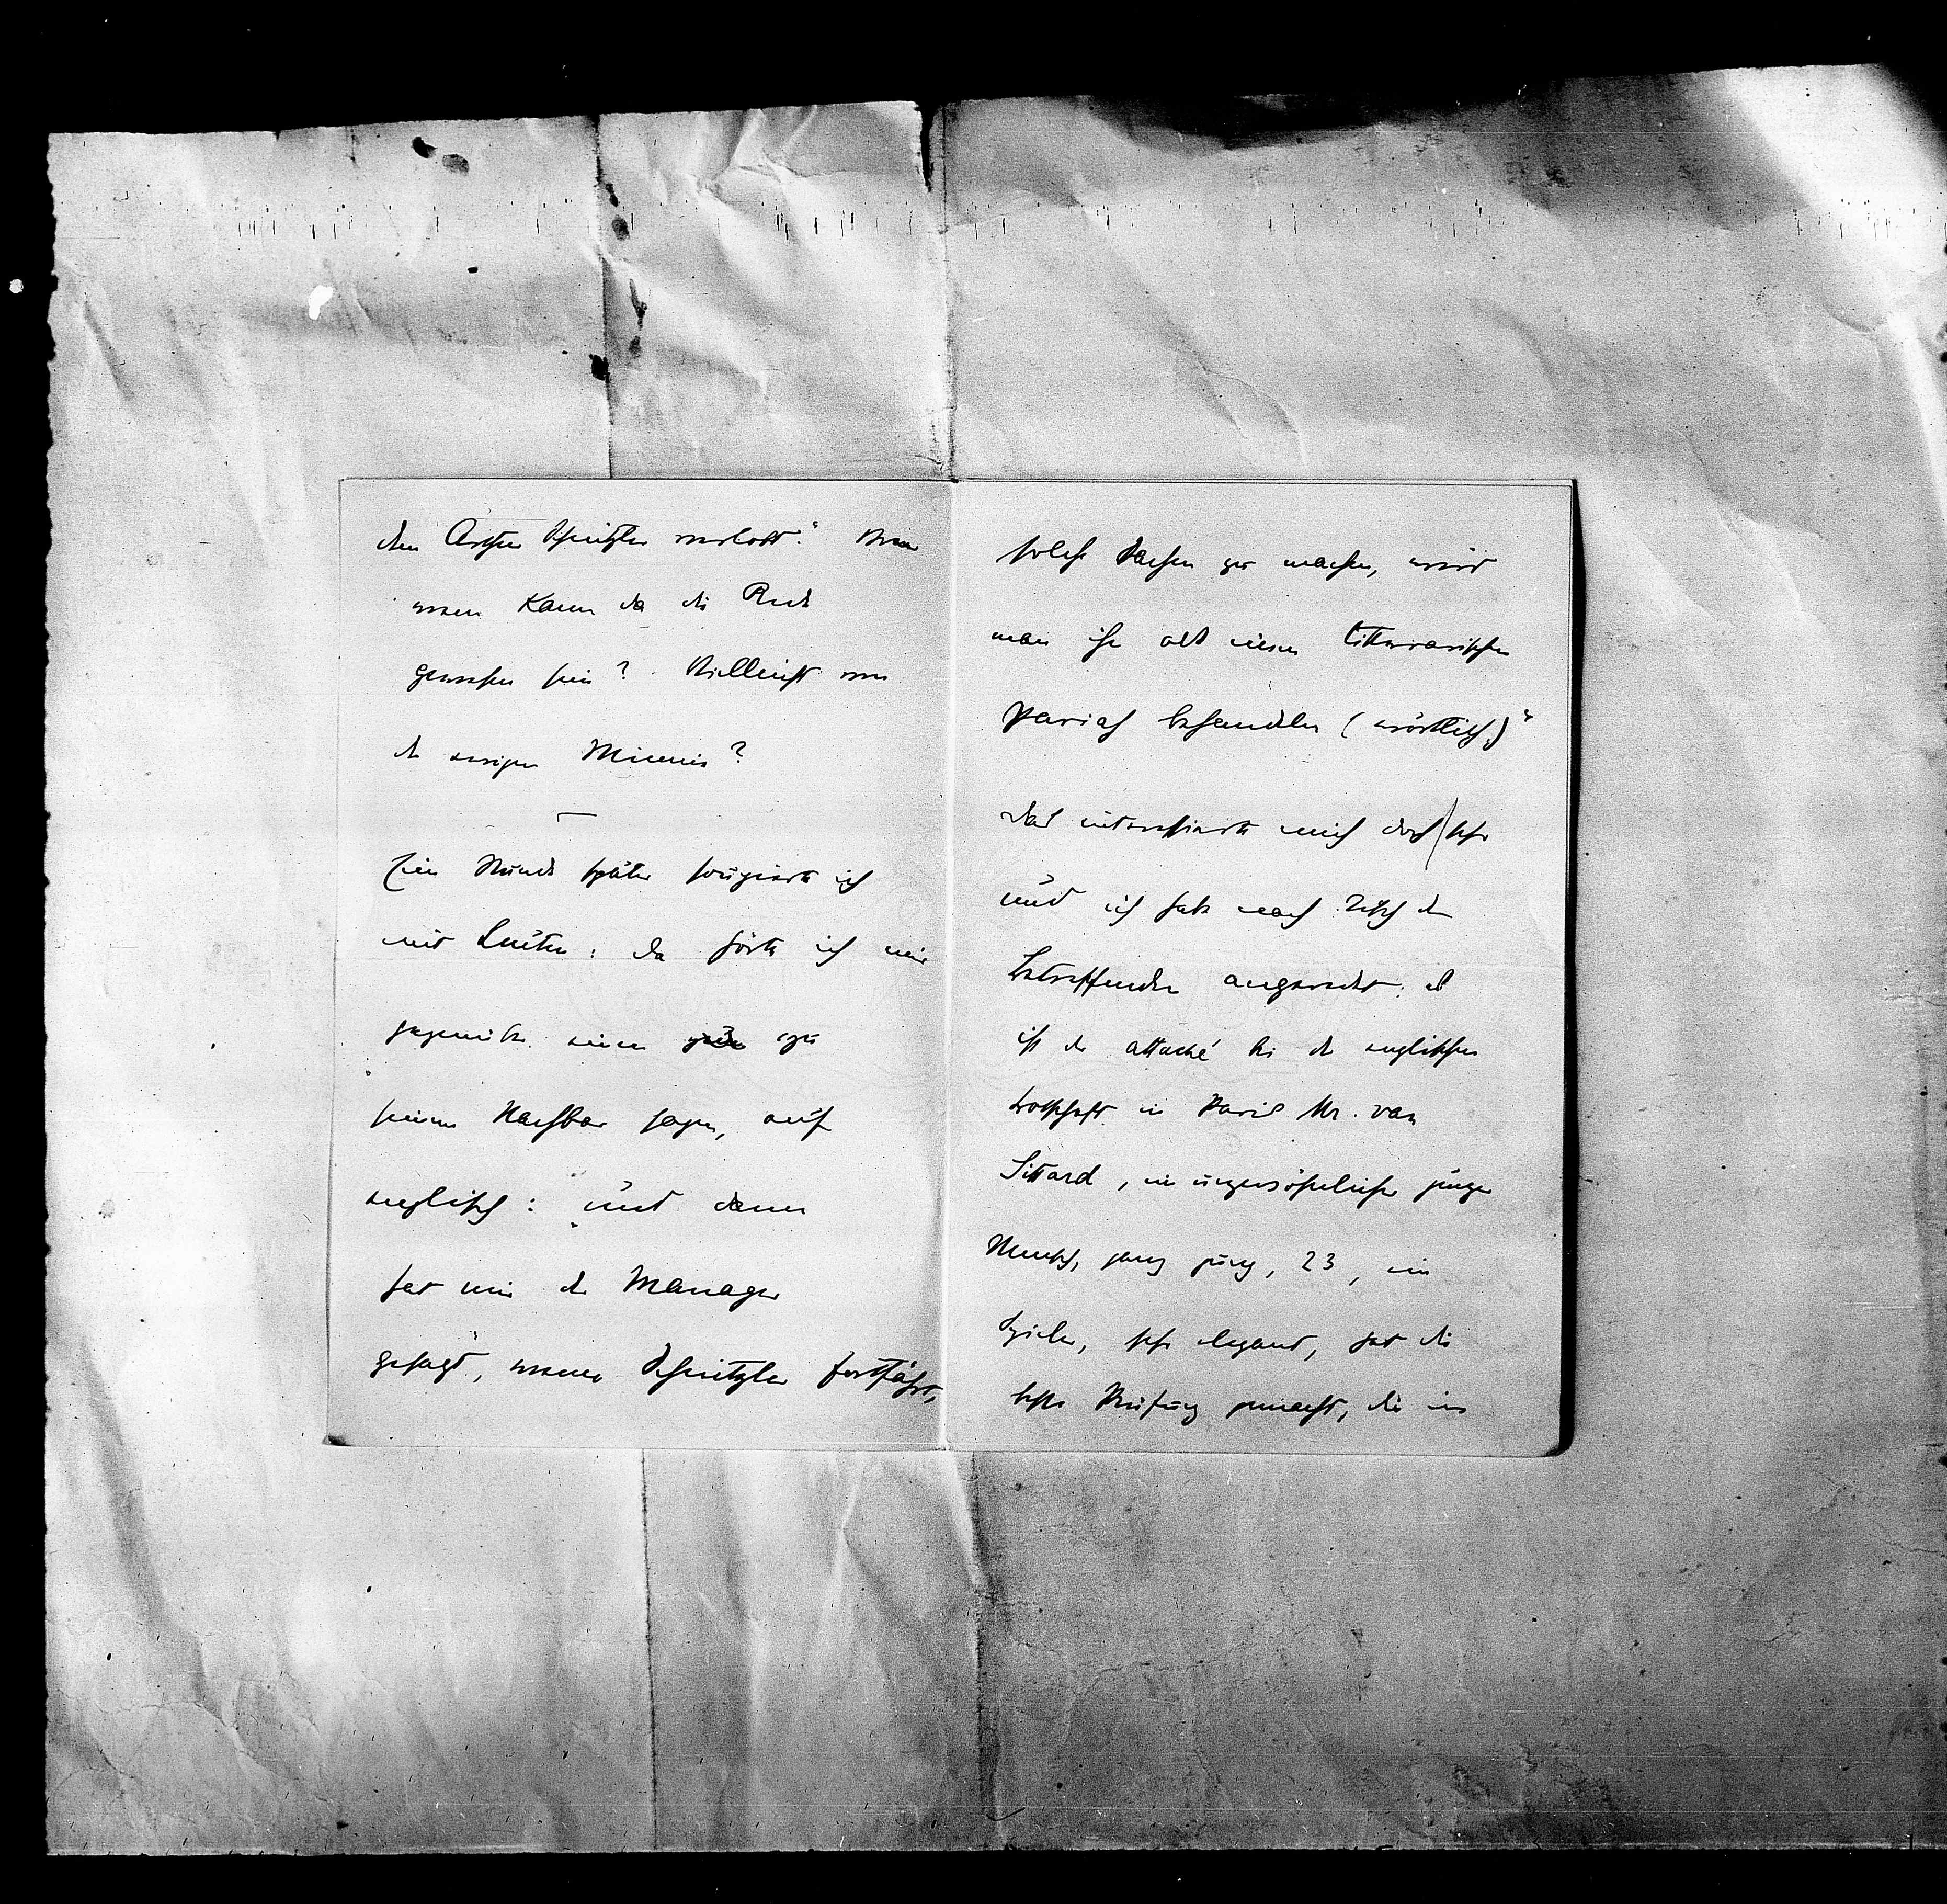 den Arthur Schnitzler verlobt." Von
wem kann da die Rede
gewesen sein? Vielleicht von
der ewigen Minnie?
—
Eine Stunde später soupierte ich
mit Leuten: da hörte ich mir
gegenüber einen zu
seinem Nachbar sagen, auf
englisch: „und dann
hat mir der Manager
gesagt, wenn Schnitzler fortfährt,
solche Sachen zu machen, wird
man ihn als einen litterarischen
Pariah behandeln (wörtlich)"
Das interessierte mich doch sehr
und ich habe nach Tisch den
Betreffenden angeredet: es
ist der attaché bei der englischen
Botschaft in Paris Mr. van
Sittard, ein ungewöhnlicher junger
Mensch, ganz jung, 23, ein
Spieler, sehr elegant, hat die
beste Prüfung gemacht, die im